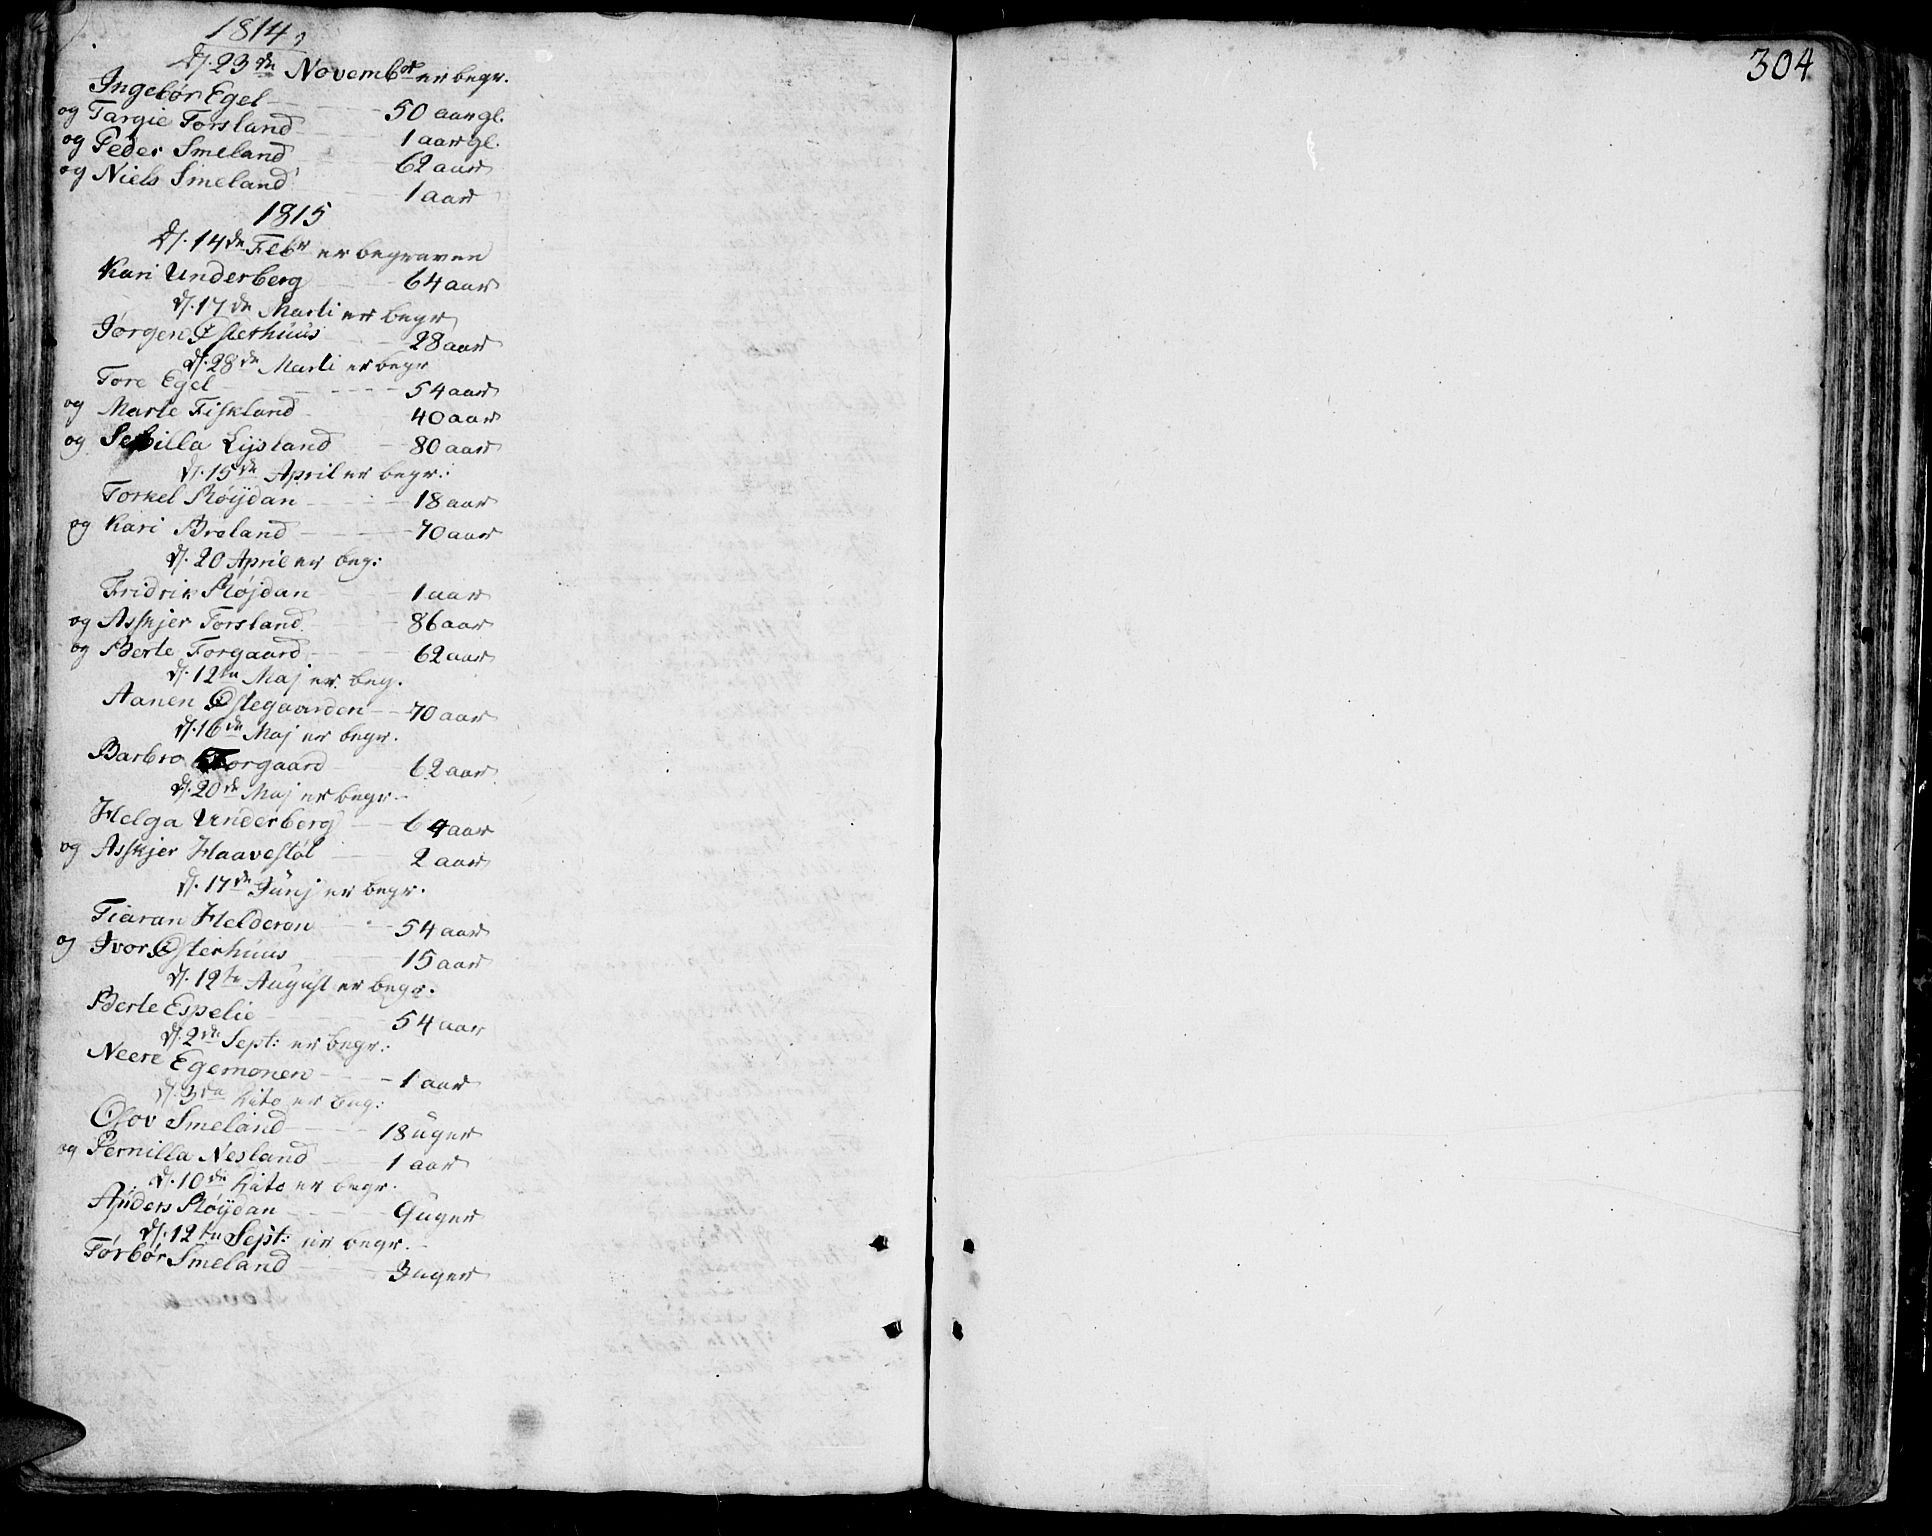 1814,
D. 23de Novembr er begr.
Ingebør Egel 50 aar gl.
og Targie Torsland 1 aar gl.
og Peder Smeland 62 aar
og Niels Smeland 1 aar
1815
D. 14de Febr er begraven
Kari Underberg 64 aar
d. 17de Marti er begr
Jørgen Østerhuus 28 aar
d. 28de Marti er begr
Tore Egel 54 aar
og Marte Fiskland 40 aar
og Sebilla Lijsland 80 aar
d. 15de April er begr:
Torkel Røijdan 18 aar
og Kari Broland 70 aar
d. 20 April er beg:
Fridrik Røjdan 1 aar
og Asskjer Torsland 86 aar
og Berte Forgaard 62 aar
d. 12te Maj er beg.
Aanen Østegaarden 70 aar
d. 16de Maj er begr.
Barbro Forgaard 62 aar
d. 20de Maj er begr.
Helga Underberg 64 aar
og Asskjer Haavestøl 2 aar
d. 17de Junj er begr.
Tiaran Helderøn 54 aar
og Ivor Østerhuus 15 aar
d. 12te August er begr.
Berte Espelie 54 aar
d. 2de Sept: er begr:
Neere Egemonen 1 aar
d. 3de dito er beg:
Olov Smeland 18 uger
og Pernilla Nesland 1 aar
d. 10de dito er begr.
Anders Røijdan 9 uger
d. 12te Sept: er begr.
Tørbør Smeland 3 uger
304